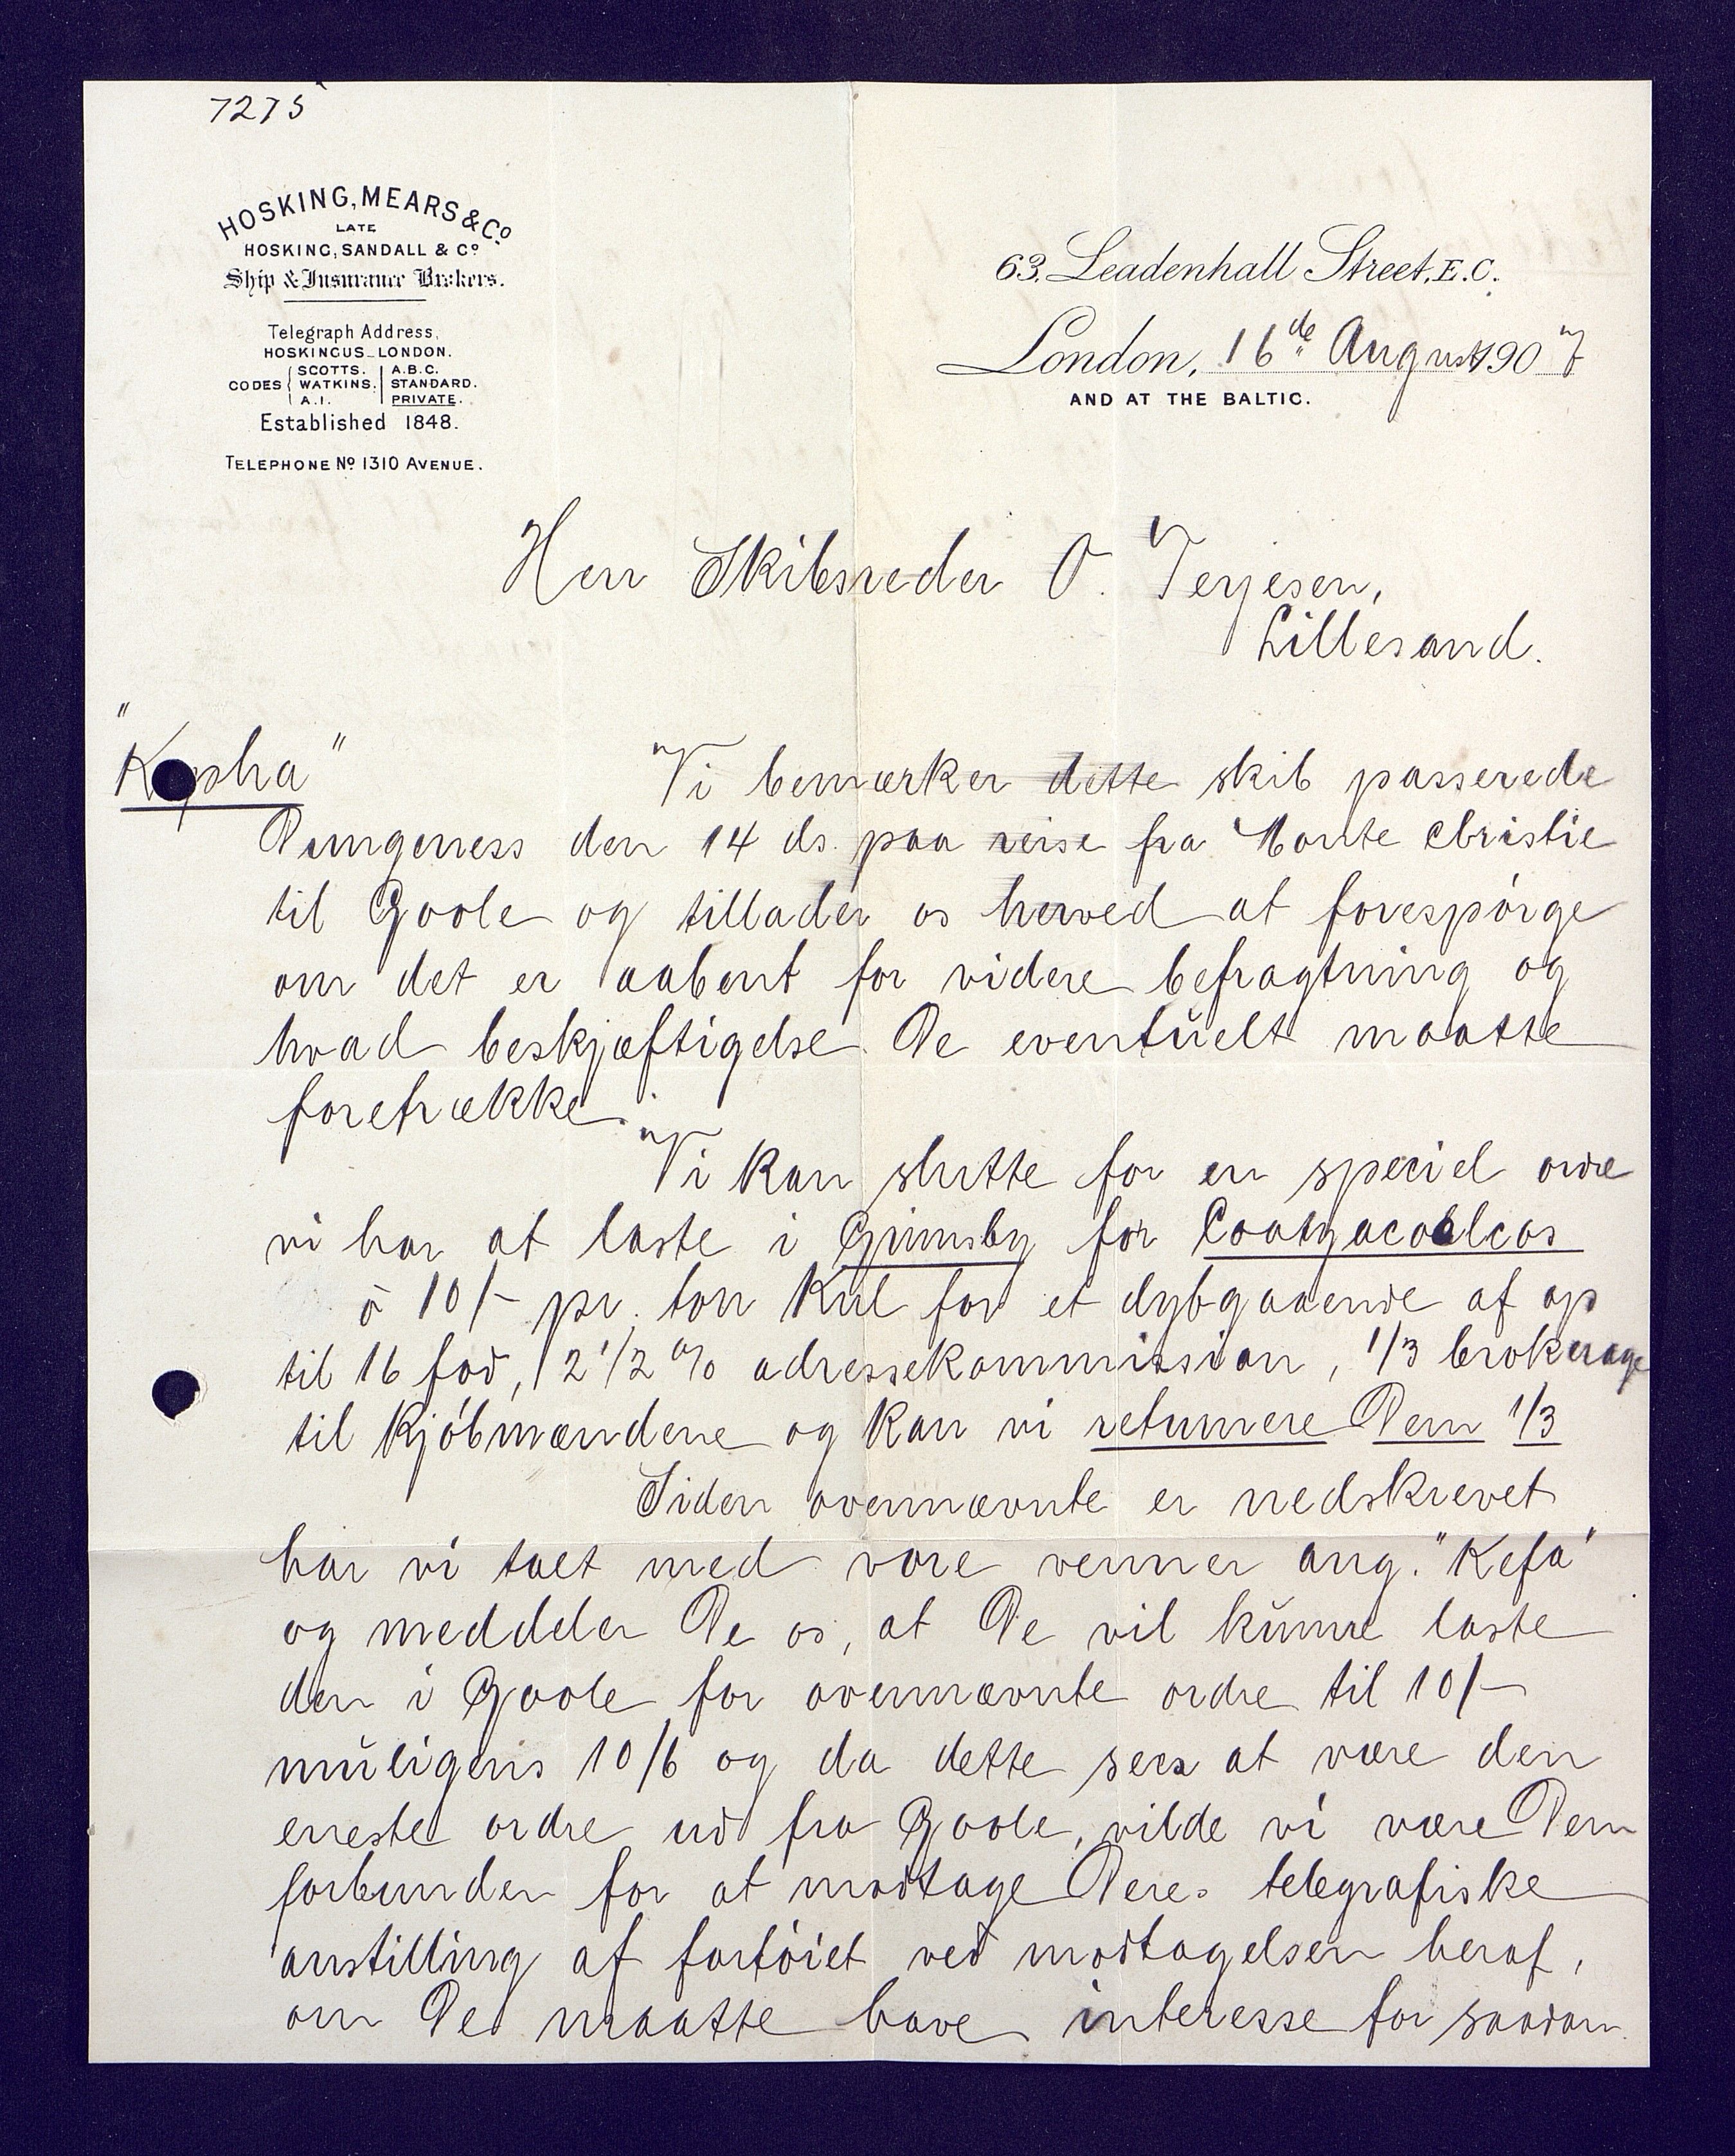 7275
HOSKING, MEARS & Co.
LATE
HOSKING, SANDALL & Co.
Ship & Insurance Brokers.
Telegraph Address,
HOSKINGUS_LONDON.
CODES { SCOTTS. WATKINS. A.I. | A.B.C. STANDARD. PRIVATE.
Established 1848.
TELEPHONE No. 1310 AVENUE.
63, Leadenhall Street, E.C.
London, 16de August 1907
AND AT THE BALTIC.
Herr Skibsreder O. Terjesen,
Lillesand.
"Kepha"
Vi bemærker dette skib passerede
Dungeness den 14 ds. paa reise fra Monte Christie
til Goole og tillader os herved at forespórge
om det er aabent for videre befragtning og
hvad beskjæftigelse De eventuelt maatte
foretrække.
Vi kan slutte for en speciel ordre
vi har at laste i Grimsby for Coatzacoalcos
à 10/- pr. ton kul for et dybgaaende af op
til 16 fod, 2 1/2 % adressekommission, 1/3 brokerage
til kjóbmændene og kan vi returnere Dem 1/3
Siden ovennævnte er nedskrevet
har vi talt med vore venner ang. "Kefa"
og meddeler De os, at De vil kunne laste
den i Goole for ovennævnte ordre til 10/-
muligens 10/6 og da dette sees at være den
eneste ordre ud fra Goole, vilde vi være Dem
forbunden for at modtage Deres telegrafiske
anstilling af fartóiet ved modtagelsen heraf,
om De maatte have interesse for saadan